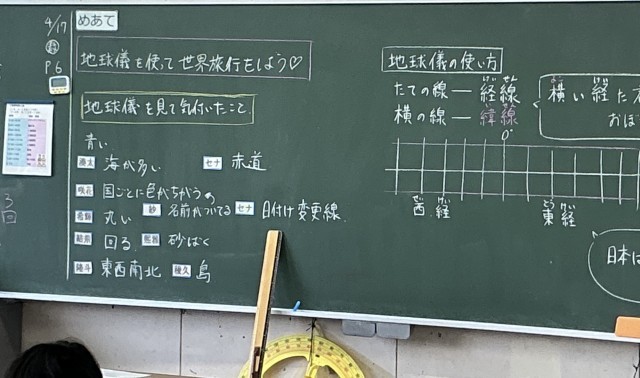 4/17
P6
めあて
地球儀を使って世界旅行をしよう♡
地球儀を見て気付いたこと
青い
海が多い セナ 赤道
国ごとに色がちがうの
丸い 紗 名前がついてる セナ 日付け変更線
回る 砂ばく
東西南北 島
地球儀の使い方
たての線― 経線
けい せん
横の線― 緯線
0°
西経
せい けい
東経
とう けい
横い経た
よこ けい
おぼ
日本は
3
回